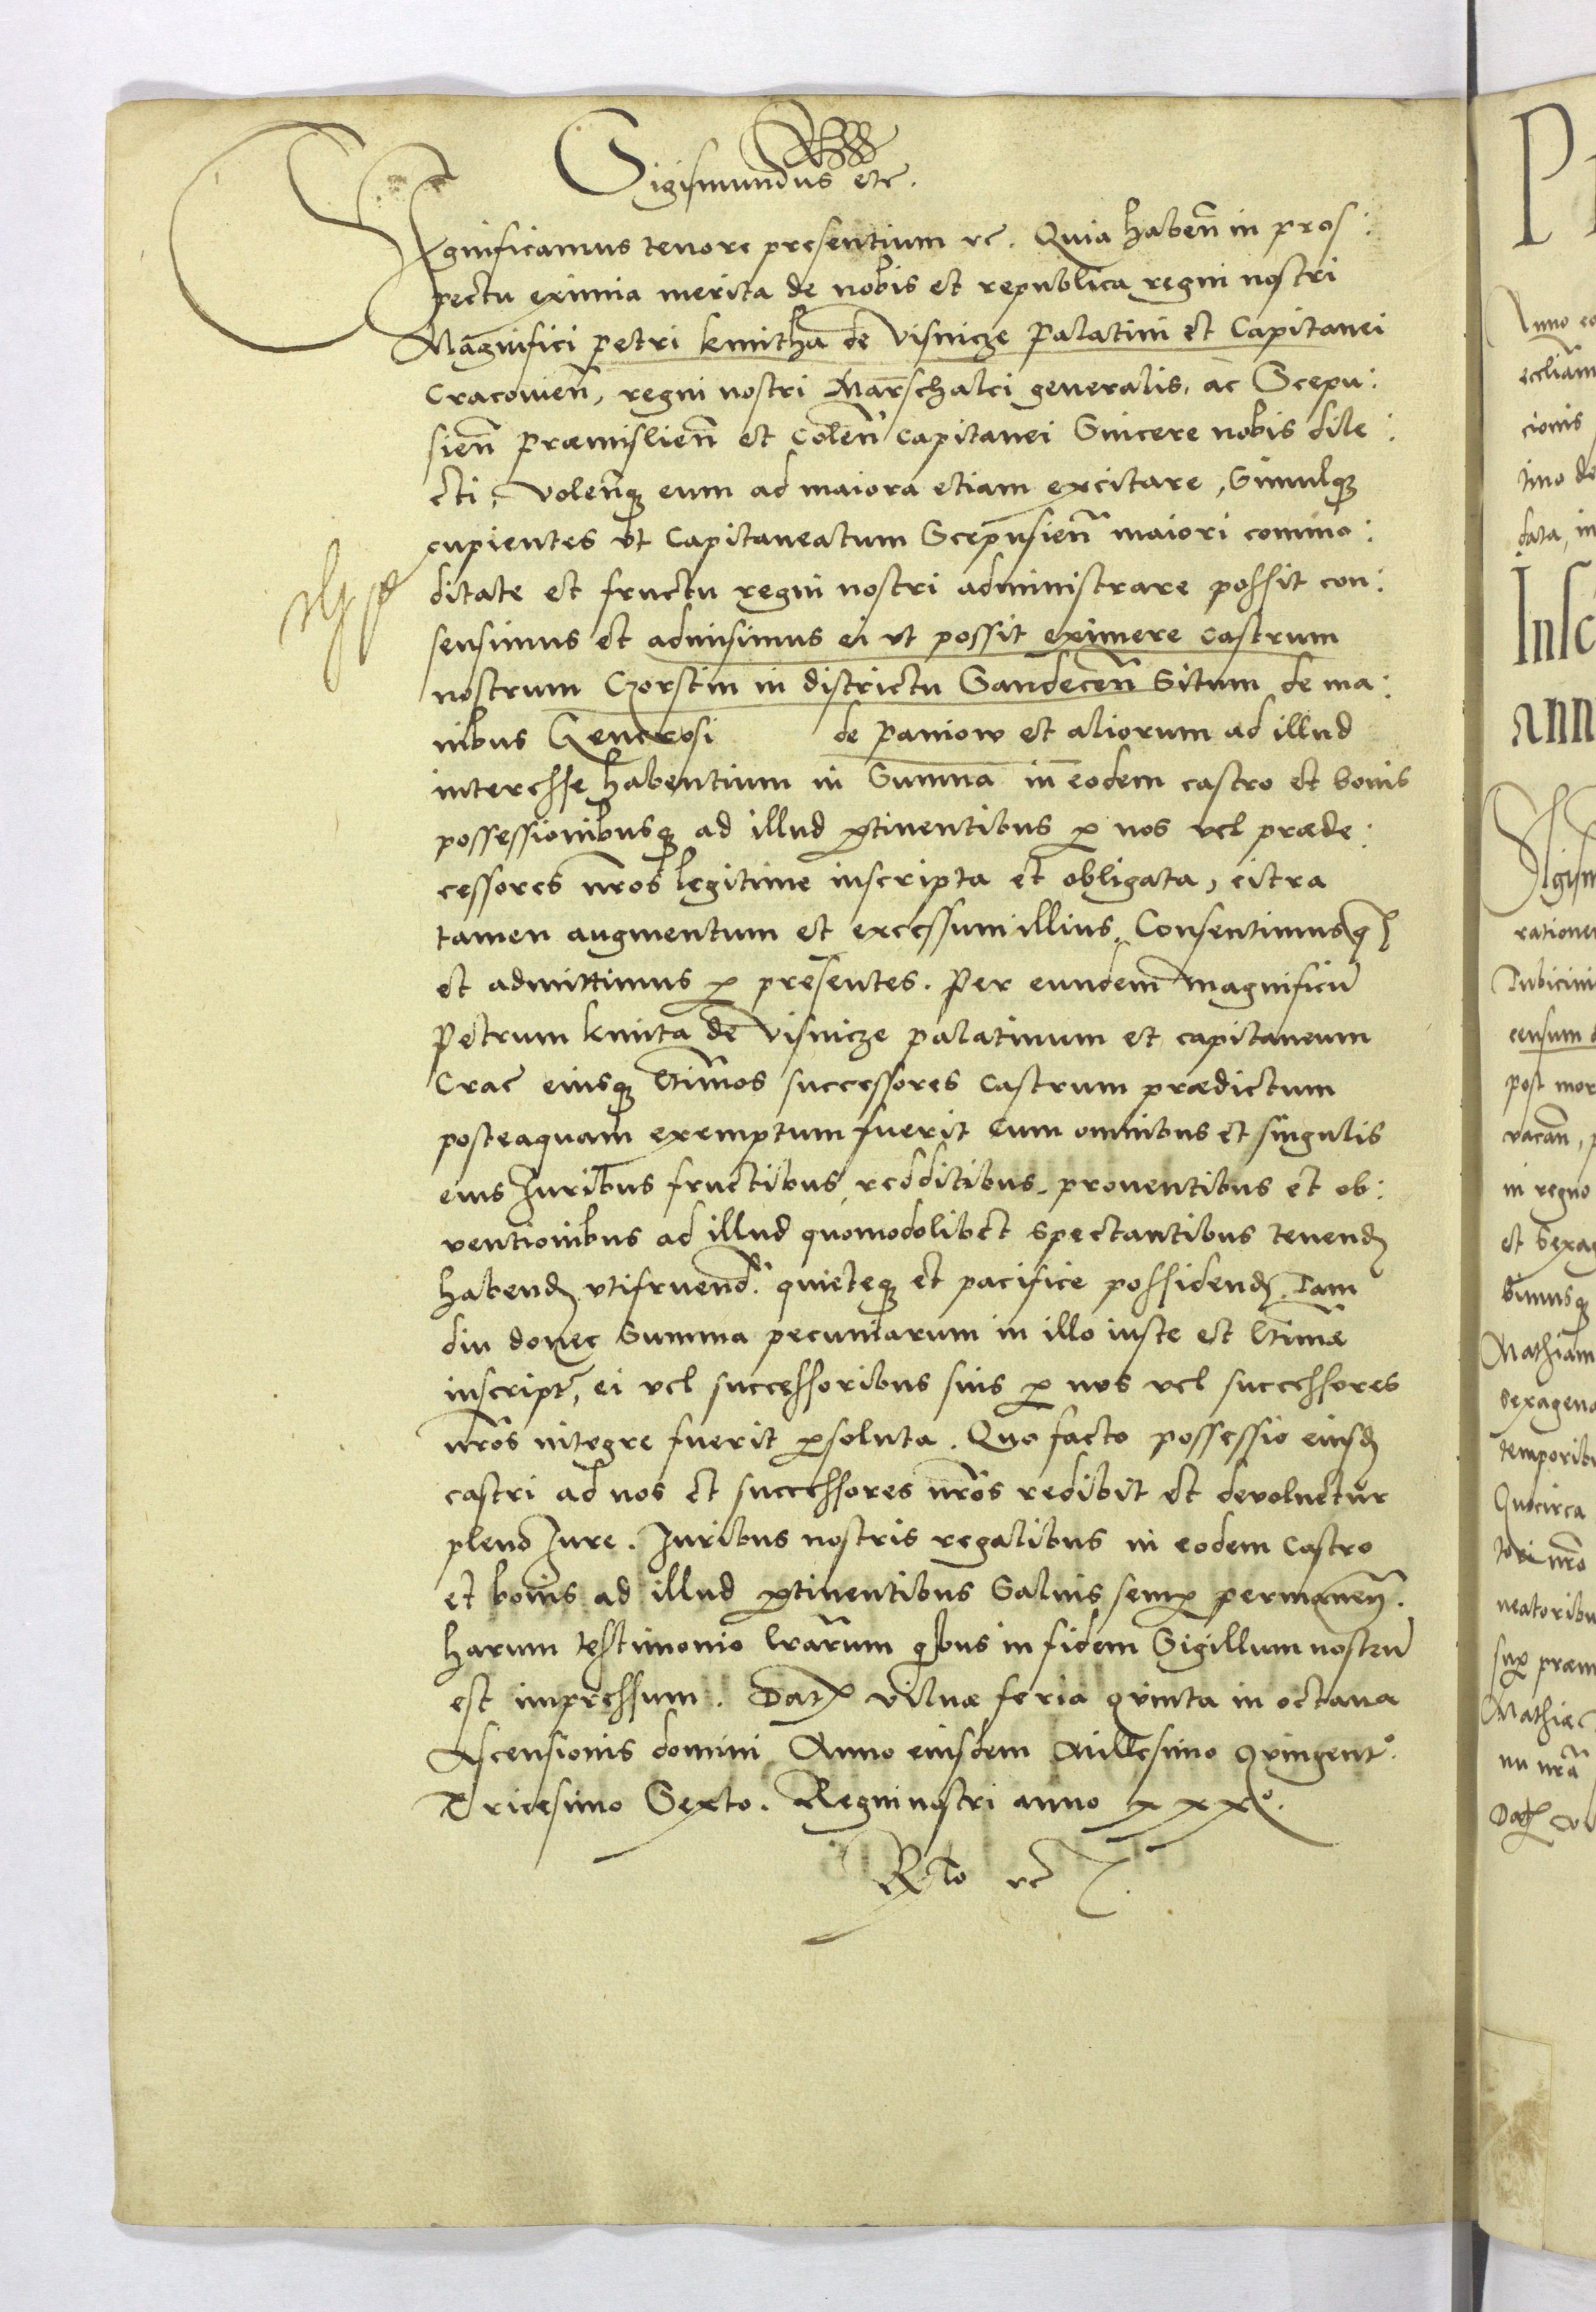 Sigismundus etc.
Significamus tenore presentium etc. Quia habeñ in pros:
pectu eximia merita de nobis et republica regni nostri
Magnifici petri kmitha de Visnicze Palatini et Capitanei
Cracovieñ, regni nostri Marschalci generalis, ac Scepu:
sieñ Præmislieñ et Coleñ capitanei Sincere nobis dile:
cti, volenꝗ eum ad maiora etiam excitare, Simulꝗ
cupientes vt Capitaneatum Scepusieñ maiori commo:
ditate et fructu regni nostri administrare possit con:
sensimus et admisimus ei vt possit eximere castrum
nostrum Czorstin in districtu Sandeceñ Situm de ma:
nibus Generosi de Paniow et aliorum ad illud
interesse habentium in Summa in eodem castro et bonis
possessionibusꝗ ad illud ptinentibus p nos vel præde:
cessores nros legitime inscripta et obligata, citra
tamen augmentum et excessum illius. Consentimusꝗ
et admittimus p presentes. Per eundem Magnificũ
Petrum kmita de Visnicze palatinum et capitaneum
Crac eiusꝗ ltimos successores Castrum prædictum
posteaquam exemptum fuerit Cum omnibus et singulis
eius Juribus fructibus, redditibus, proventibus et ob:
ventionibus ad illud quomodolibet spectantibus tenend
habend vtifruend. quieteꝗ et pacifice possidend. Tam
diu donec Summa pecuniarum in illo iuste et ltimæ
inscript, ei vel successoribus suis p nos vel successores
nros integre fuerit psoluta. Quo facto possessio eiusd
castri ad nos et successores nros redibit et devoluetur
pleno Jure. Juribus nostris regalibus in eodem Castro
et bonis ad illud ptinentibus Salvis semp permaneñ.
harum testimonio lrarum qibus in fidem Sigillum nostrũ
est impressum. Dat vilnæ feria quinta in octava
Ascensionis domini Anno eiusdem Millesimo quingent°.
Tricesimo Sexto. Regni nostri anno xxx°.
Rlo etc
Anno eo
eccliam
cionis
timo de
data, in
Insc
ann
Sigism
ratione
Tubicini
censum
post mor
vacañ, p
in regno
et sexag
bimusꝗ
Mathiam
sexagena
temporib
Quocirca
tori nro
neatoribu
sup præm
Mathiæ
nu nra
Dat vi